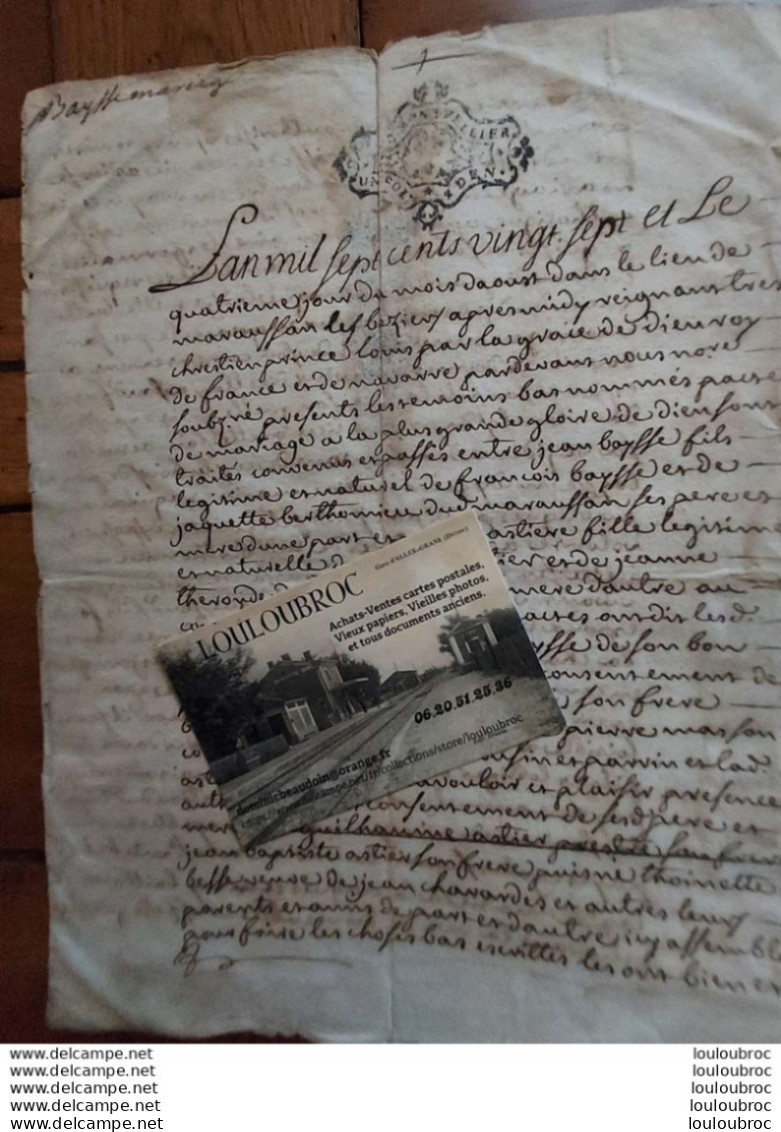 Baysse
MONTPELLIER
DEN
Lan mil sept cents vingt sept et Le
quatrieme jour du mois daoust dans le lieu de
maraussan les beziers apres midy reignant tres
chrestien prince louis par la grace de dieu roy
de france et de navarre pardevant nous nore
soubzne presents les temoins bas nommés pacte
de mariage a la plus grande gloire de dieu sont
traités convenus et passés entre jean baysse fils
legitime et naturel de francois baysse et de
jaquette berthomieu dud maraussan ses pere et
mere dune part et astiere fille legitime
et naturelle d tier et de jeanne
theron de mere dautre au
actes ont dit les d.
ysse de son bon
consentement de
son frere
pierre masson
usin et parrin et lad.
vouloir et plaisir presence
consentement de sesd pere et
mere guilhaume astier son frere
jean baptiste astier son frere puisne thoinette
besse veuve de jean chavardes et autres leurs
parents et amis de part et dautre icy assemblés
pour faire les choses bas escrittes les ont bien et
LOULOUBROC
Gare d'ALLEX-GRANE (Drôme)
Achats-Ventes cartes postales,
Vieux papiers, Vieilles photos,
et tous documents anciens.
06.20.51.25.36
dominicbeaudoin@orange.fr
https://www.delcampe.net/fr/collections/store/louloubroc
www.delcampe.net louloubroc
www.delcampe.net louloubroc
www.delcampe.net louloubroc
www.delcampe.net louloubroc
www.delcampe.net louloubroc